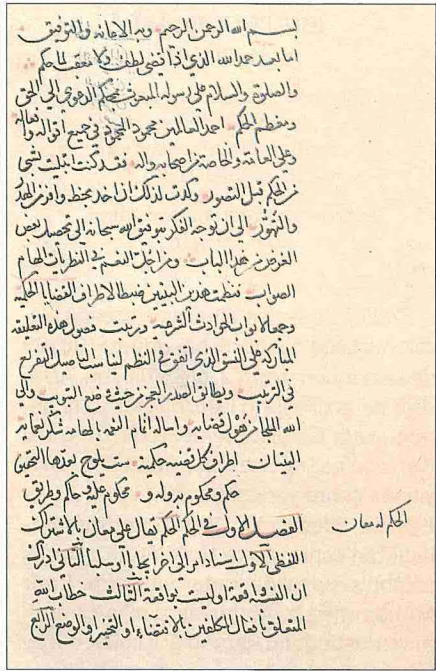 بسم الله الرحمن الرحيم وبه الاعانة والتوفيق
اما بعد حمد الله الذي اذا قضى لطف ولا معقب لما حكم
والصلوة والسلام على رسوله المبعوث الدعوى الى الحق
ومعظم الحكم احمد العالمين محمود في جميع اقواله
وعلى العامة والخاصة من اصحابه واله فقد كنت ابتليت بشي
من الحكم قبل التصور وكدت لذلك ان اخذ بحظ وافر من
والتهور الى ان توجه الفكر بتوفيق الله سبحانه الى تحصيل بعض
الغرض من هذا الباب ومن اجل النعم في النظريات الهام
الصواب نظمت هذين البيتين ضبطا لاطراف القضايا الحكمية
وجمعا لابواب الحوادث الشرعية ورتبت فصول هذه التعليقة
المباركة على النسق الذي اتفق في النظم ليناسب التاصيل التفريع
في الترتيب ويطابق الصدر العجز من حيث وقع التبويب والى
الله الملجأ من هول قضايه واساله اتمام النعمة
البيتان اطراف كل قضية حكمية ست يلوح بعدها التحقيق
حكم ومحكوم به وله و محكوم عليه وحاكم وطريق
الفصل الاول في الحكم الحكم يقال على معان بالاشتراك
الحكم له معان
اللفظي الاول اسناد امر الى اخر ايجابا او سلبا الثاني ادراك
ان النسبة واقعة او ليست بواقعة الثالث خطاب الله
المتعلق بافعال المكلفين بالاقتضاء او التخيير او الوضع الرابع